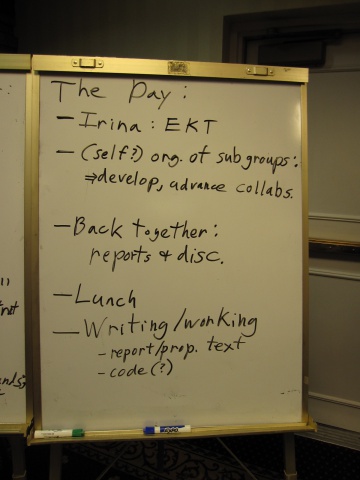 The Day:
- Irina: EKT
- (self?) org. of subgroups:
⇒develop, advance collabs.
- Back together:
reports & disc.
- Lunch
- Writing/working
- report/prop. text
- code(?)